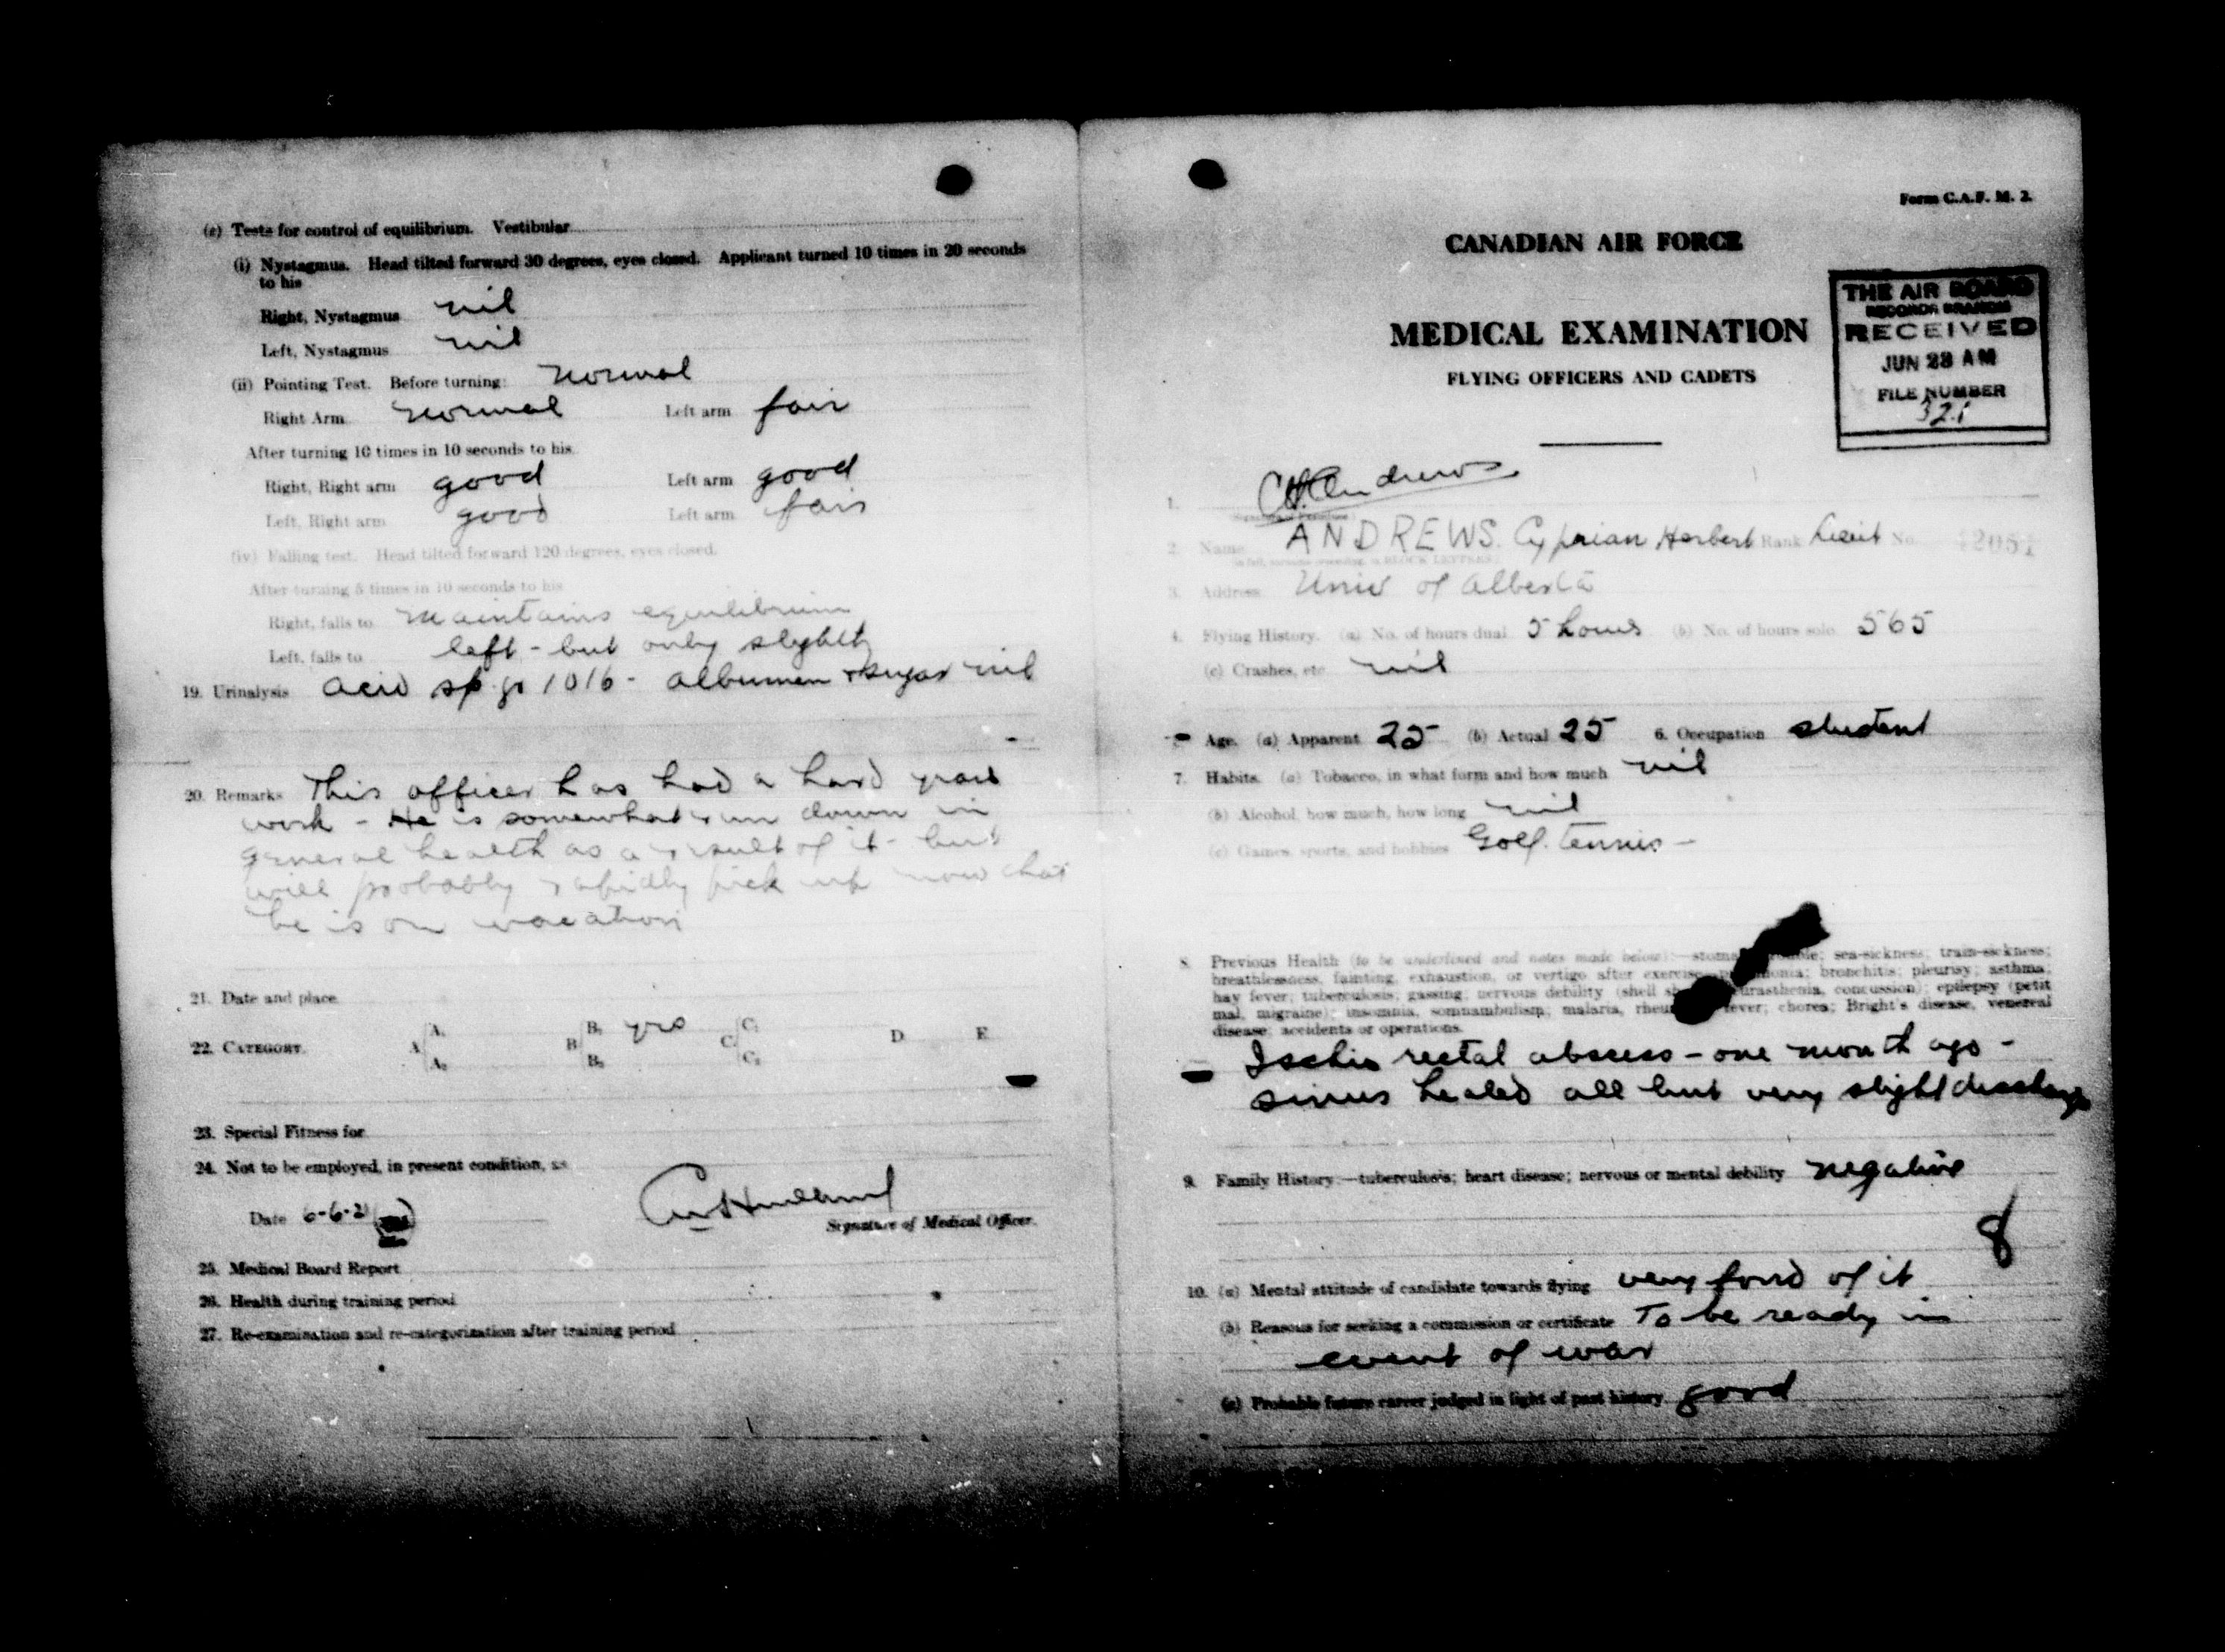 (e) Tests for control of equilibrium. Vestibular
(i) Nystagmus. Head tilted forward 30 degrees, eyes closed. Applicant turned 10 times in 20 seconds
to his
Right, Nystagmus nil
Left, Nystagmus nil
(ii) Pointing Test. Before turning: normal
Right Arm normal Left arm fair
After turning 10 times in 10 seconds to his
Right, Right arm good Left arm good
Left, Right arm good Left arm fair
(iv) Falling test. Head tilted forward 120 degrees, eyes closed.
After turning 5 times in 10 seconds to his
Right, falls to maintains equilibrium
Left, falls to left - but only slightly
19. Urinalysis acid sp. gr 1016 - albumen + sugar nil
20. Remarks This officer has had a hard years
work - He is somewhat run down in
general health as a result of it - but
will probably rapidly pick up now that
he is on vacation
21. Date and place
22. CATEGORY. A A1 A2 B B1 yes B2 C C1 C2 D E
23. Special Fitness for
24. Not to be employed, in present condition, as
Date 6-6-21
Signature of Medical Officer.
25. Medical Board Report
26. Health during training period
27. Re-examination and re-categorization after training period
Form C.A.F. M. 2.
CANADIAN AIR FORCE
MEDICAL EXAMINATION
FLYING OFFICERS AND CADETS
THE AIR BOARD
RECORDS BRANCH
RECEIVED
JUN 23 AM
FILE NUMBER
321
1. CH Andrews
2. Name ANDREWS. Cyprian Herbert Rank Lieut No.
3. Address Univ of Alberta
4. Flying History. (a) No. of hours dual 5 hours (b) No. of hours solo 565
(c) Crashes, etc nil
Age. (a) Apparent 25 (b) Actual 25 6. Occupation student
7. Habits. (a) Tobacco, in what form and how much nil
(b) Alcohol, how much, how long nil
(c) Games, sports, and hobbies Golf. tennis -
8. Previous Health (to be underlined and notes made below):—stomach trouble; sea-sickness; train-sickness;
breathlessness, fainting, exhaustion, or vertigo after exercise; pneumonia; bronchitis; pleurisy; asthma;
hay fever; tuberculosis; gassing; nervous debility (shell shock, neurasthenia, concussion); epilepsy (petit
mal, migraine); insomnia, somnambulism; malaria, rheumatic fever; chorea; Bright's disease, venereal
disease; accidents or operations.
Ischio rectal abscess - one month ago -
sinus healed all but very slight discharge
9. Family History:—tuberculosis; heart disease; nervous or mental debility negative
8
10. (a) Mental attitude of candidate towards flying very fond of it
(b) Reasons for seeking a commission or certificate To be ready in
event of war
(c) Probable future career judged in light of past history good